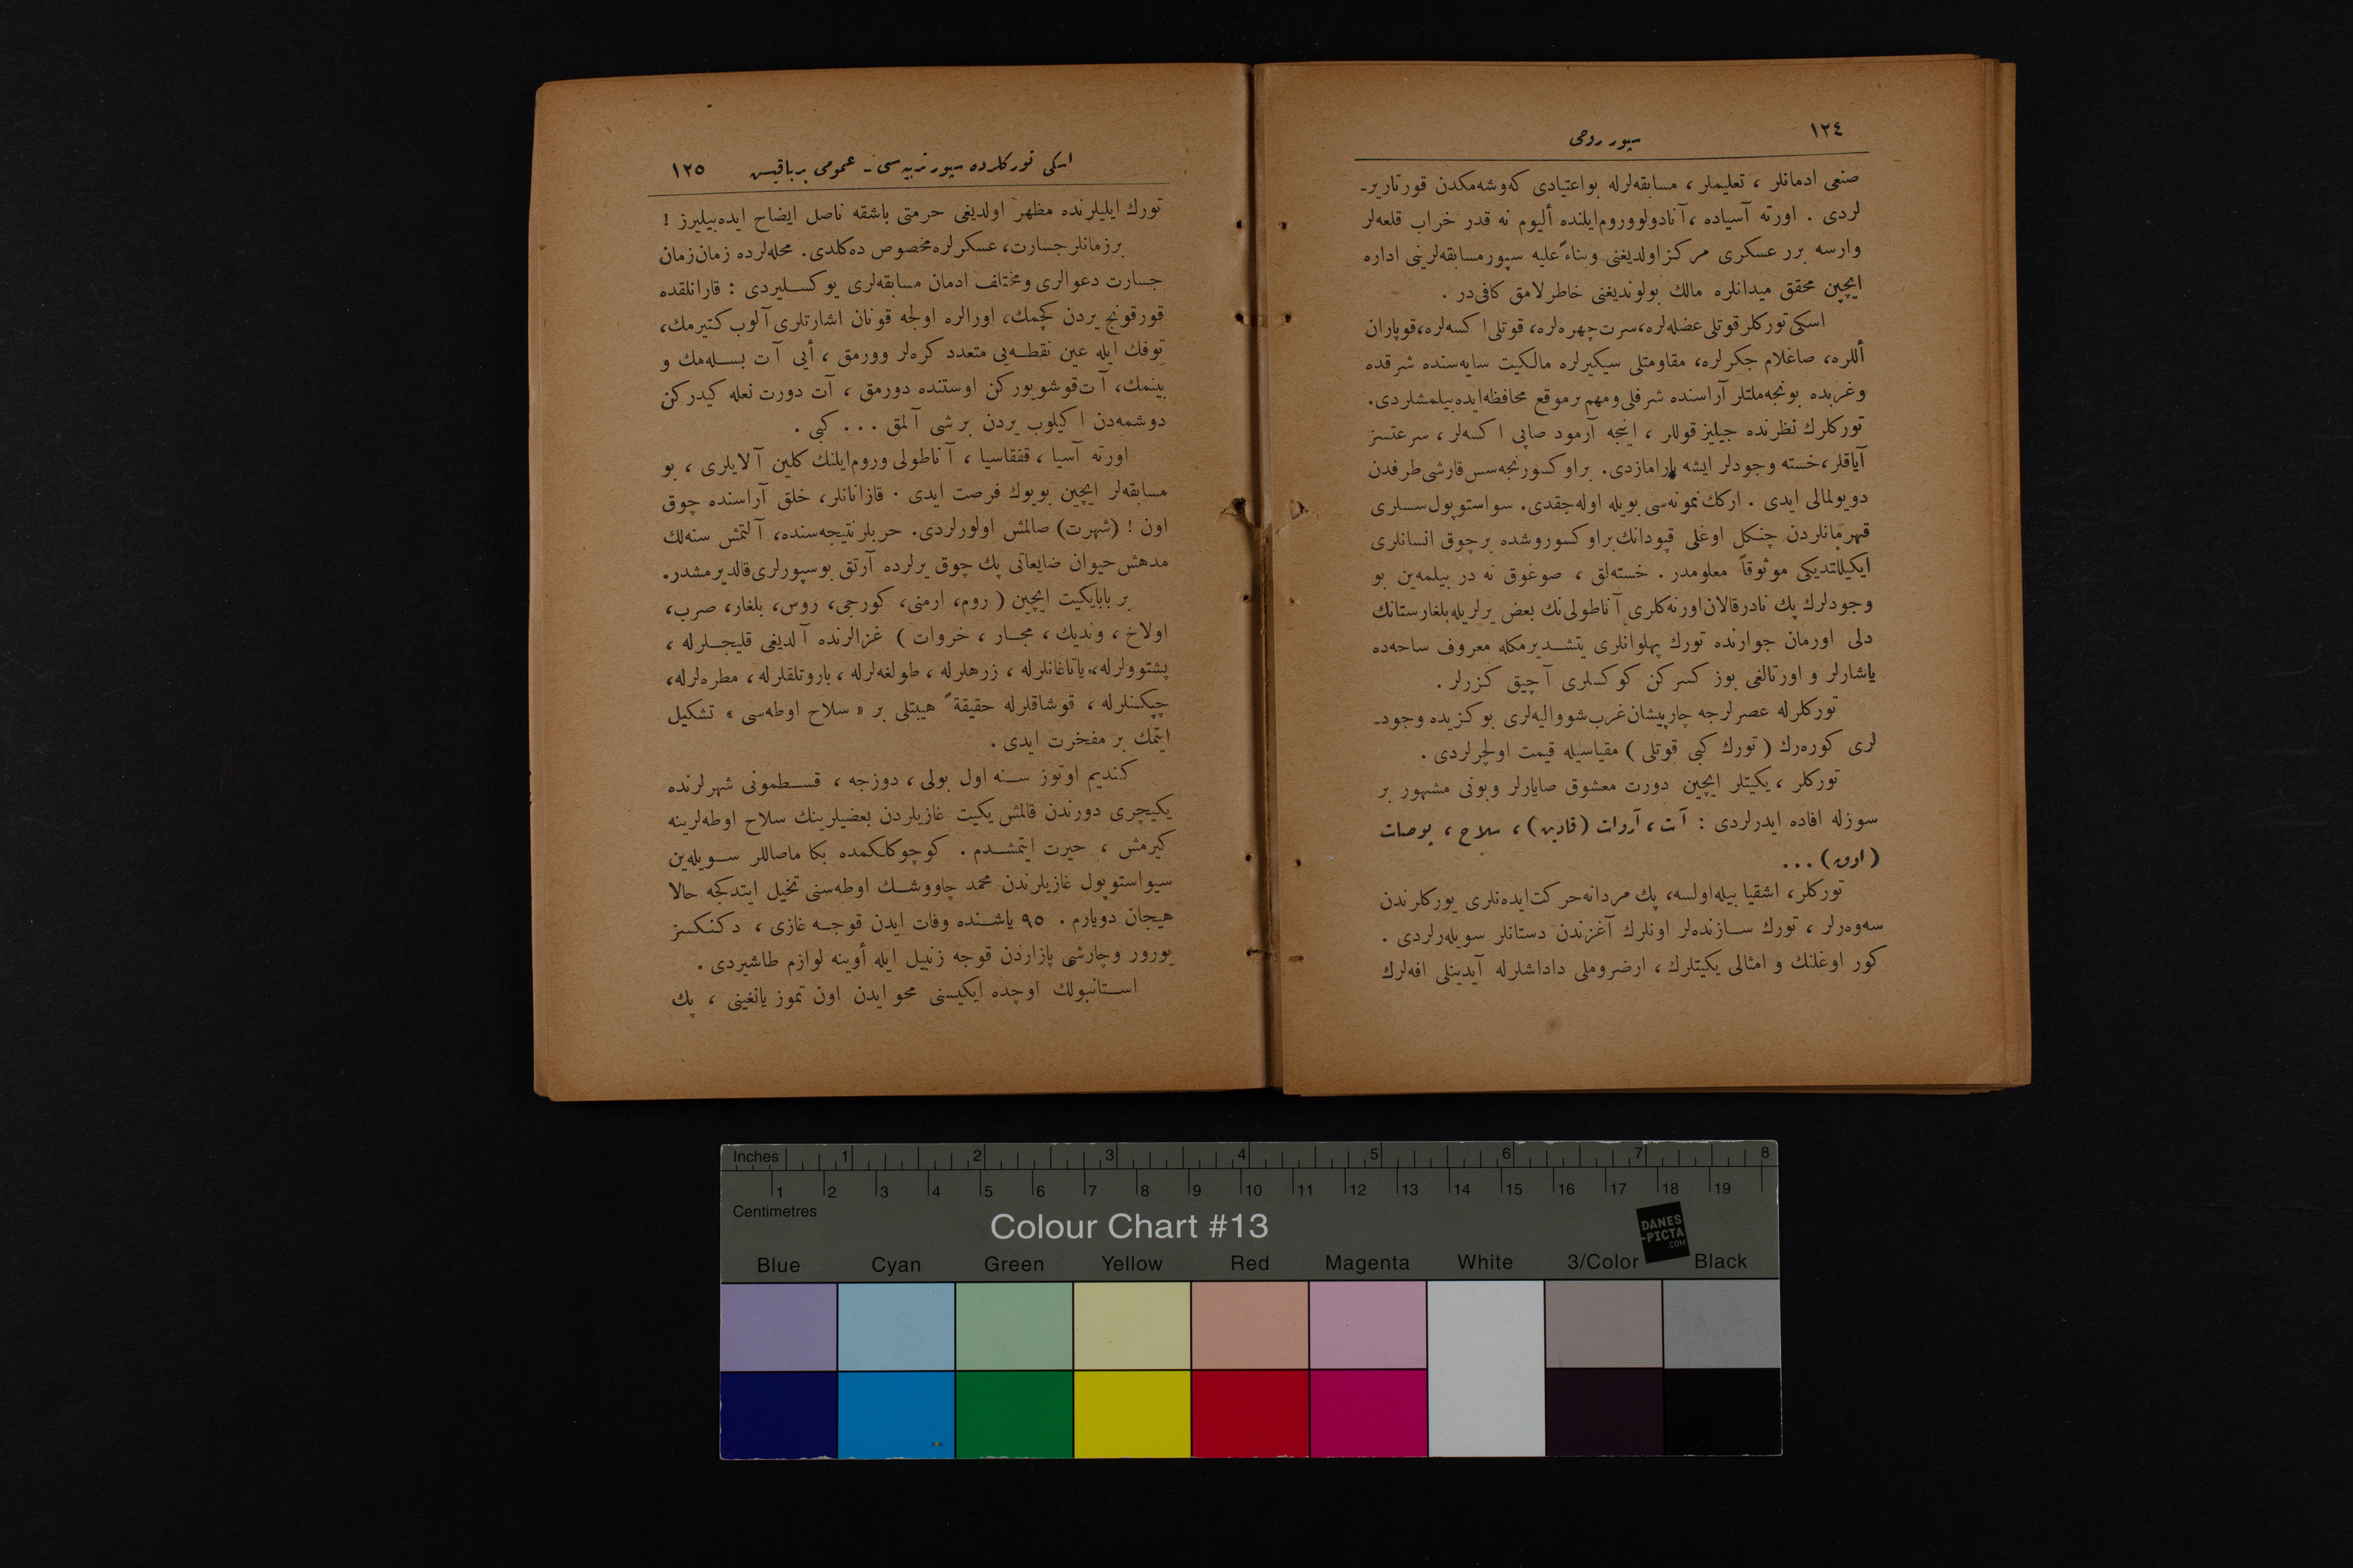 ١٢٤
سپور روحی
صنعی ادمانلر ، تعلیملر ، مسابقه‌لرله بواعتیادی كه‌وشه‌مكدن قورتاریر-
لردی . اورته آسیاده ، آنادولووروم‌ایلنده ألیوم نه قدر خراب قلعه‌لر
وارسه برر عسكری مركز اولدیغنی وبناءً علیه سپورمسابقه‌لرینی اداره
ایچین محقق میدانلره مالك بولوندیغنی خاطرلامق كافی‌در .
اسكی توركلر قوتلی عضله‌لره، سرت چهره‌لره، قوتلی اكسه‌لره، قوپاران
أللره، صاغلام جكرلره، مقاومتلی سیكیرلره مالكیت سایه‌سنده شرقده
وغربده بونجه‌ملتلر آراسنده شرفلی ومهم برموقع محافظه‌ایده‌بیلمشلردی.
توركلرك نظرنده جیلیز قوللر ، اینجه آرمود صاپی اكسه‌لر ، سرعتسز
آیاقلر، خسته وجودلر ایشه یارامازدی. براوكسورنجه‌سس قارشی‌طرفدن
دویولمالی ایدی . اركك نمونه‌سی بویله اوله‌جقدی. سواستوپول سسلری
قهرمانلردن چنكل اوغلی قپودانك براوكسوروشده برچوق انسانلری
ایكیللتدیكی موثوقاً معلومدر . خسته‌لق ، صوغوق نه در بیلمه‌ین بو
وجودلرك پك نادرقالان‌اورنه‌كلری آناطولی‌نك بعض یرلریله‌بلغارستانك
دلی اورمان جوارنده تورك پهلوانلری یتشدیرمكله معروف ساحه‌ده
یاشارلر و اورتالغی بوز كسركن كوكسلری آچیق كزرلر .
توركلرله عصرلرجه چارپیشان‌غرب شووالیه‌لری بو كزیده وجود-
لری كوره‌رك ( تورك كبی قوتلی ) مقیاسیله قیمت اولچرلردی .
توركلر ، یكیتلر ایچین دورت معشوق صایارلر وبونی مشهور بر
سوزله افاده ایدرلردی : آت ، آروات (قادین) ، سلاح ، پوصات
(اوق) ...
توركلر، اشقیا بیله‌اولسه، پك مردانه‌حركت‌ایده‌نلری یوركلرندن
سه‌وه‌رلر ، تورك سازنده‌لر اونلرك آغزندن دستانلر سویله‌رلردی .
كور اوغلنك و امثالی یكیتلرك ، ارضروملی داداشلرله آیدینلی افه‌لرك
اسكی توركلرده سپور تربیه‌سی - عمومی بر باقیش
١٢٥
تورك ایللرنده مظهر اولدیغی حرمتی باشقه ناصل ایضاح ایده‌بیلیرز !
برزمانلر جسارت، عسكرلره‌مخصوص ده‌كلدی. محله‌لرده زمان‌زمان
جسارت دعوالری ومختلف ادمان مسابقه‌لری یوكسلیردی : قارانلقده
قورقونج یردن كچمك، اورالره اولجه قونان اشارتلری آلوب كتیرمك،
توفك ایله عین نقطه‌یی متعدد كره‌لر وورمق ، أیی آت بسله‌مك و
بینمك، آت‌قوشویوركن اوستنده دورمق ، آت دورت نعله كیدركن
دوشمه‌دن اكیلوب یردن برشی آلمق ... كبی .
اورته آسیا ، قفقاسیا ، آناطولی وروم‌ایلنك كلین آلایلری ، بو
مسابقه‌لر ایچین بویوك فرصت ایدی . قازانانلر، خلق آراسنده چوق
اون ! (شهرت) صالمش اولورلردی. حربلر نتیجه‌سنده، آلتمش سنه‌لك
مدهش حیوان ضایعاتی پك چوق یرلرده آرتق بوسپورلری‌قالدیرمشدر.
بر بابایكیت ایچین ( روم، ارمنی، كورجی، روس، بلغار، صرب،
اولاخ ، وندیك ، مجار ، خروات ) غزالرنده آلدیغی قلیجلرله ،
پشتوولرله، یاتاغانلرله ، زرهلرله ، طولغه‌لرله ، باروتلقلرله ، مطره‌لرله،
چپكنلرله ، قوشاقلرله حقیقةً هیبتلی بر « سلاح اوطه‌سی » تشكیل
ایتمك بر مفخرت ایدی .
كندیم اوتوز سنه اول بولی ، دوزجه ، قسطمونی شهرلرنده
یكیچری دورندن قالمش یكیت غازیلردن بعضیلرینك سلاح اوطه‌لرینه
كیرمش ، حیرت ایتمشدم . كوچوكلكمده بكا ماصاللر سویله‌ین
سیواستوپول غازیلرندن محمد چاووشك اوطه‌سنی تخیل ایتدكجه حالا
هیجان دویارم . ٩٥ یاشنده وفات ایدن قوجه غازی ، دكنكسز
یورور وچارشی پازاردن قوجه زنبیل ایله أوینه لوازم طاشیردی .
استانبولك اوچده ایكیسنی محو ایدن اون تموز یانغینی ، پك
Inches 1 2 3 4 5 6 7 8
1 2 3 4 5 6 7 8 9 10 11 12 13 14 15 16 17 18 19
Centimetres
Colour Chart #13
DANES
-PICTA
.COM
Blue Cyan Green Yellow Red Magenta White 3/Color Black